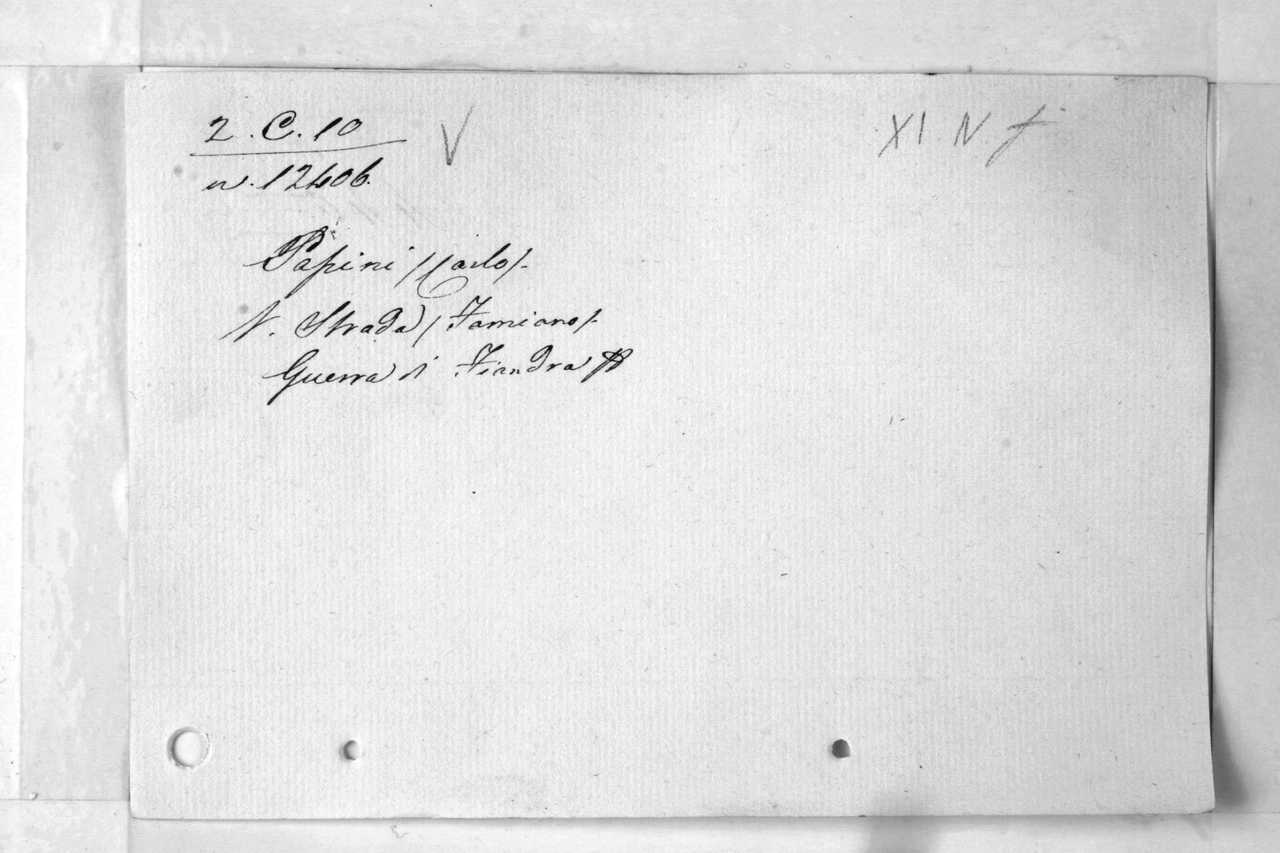 2. C. 10 V XI N f
n. 12406.
Papini /Carlo/.
V. Strada /Famiano/.
Guerra di Fiandra